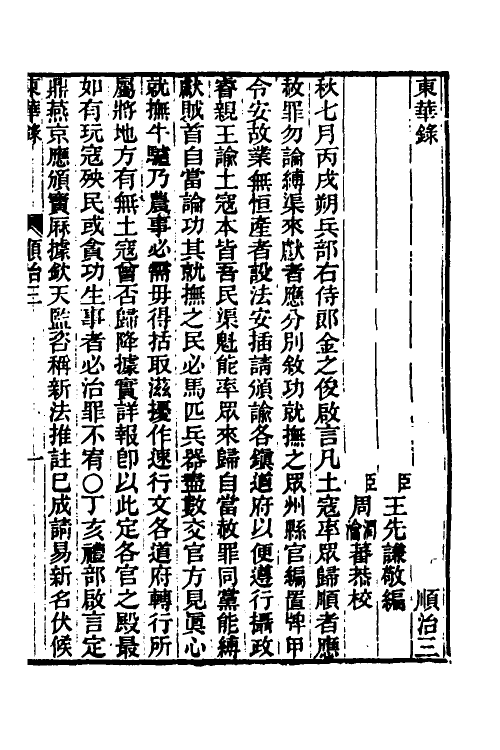 東華錄 順治三
臣王先謙敬編
臣周潤蕃瀹蕃恭校
秋七月丙戌朔兵部右侍郎金之俊啟言凡土寇率眾歸順者應
赦罪勿論縛渠來獻者應分別敘功就撫之眾州縣官編置牌甲
令安故業無恒產者設法安插請頒諭各鎮道府以便遵行攝政
睿親王諭土寇本皆吾民渠魁能率眾來歸自當赦罪同黨能縛
獻賊首自當論功其就撫之民必馬匹兵器盡數交官方見眞心
就撫牛驢乃農事必需毋得括取滋擾作速行文各道府轉行所
屬將地方有無土寇曾否歸降據實詳報卽以此定各官之殿最
如有玩寇殃民或貪功生事者必治罪不宥○丁亥禮部啟言定
鼎燕京應頒寶厤據欽天監咨稱新法推註已成請易新名伏候
東華錄 順治三 一